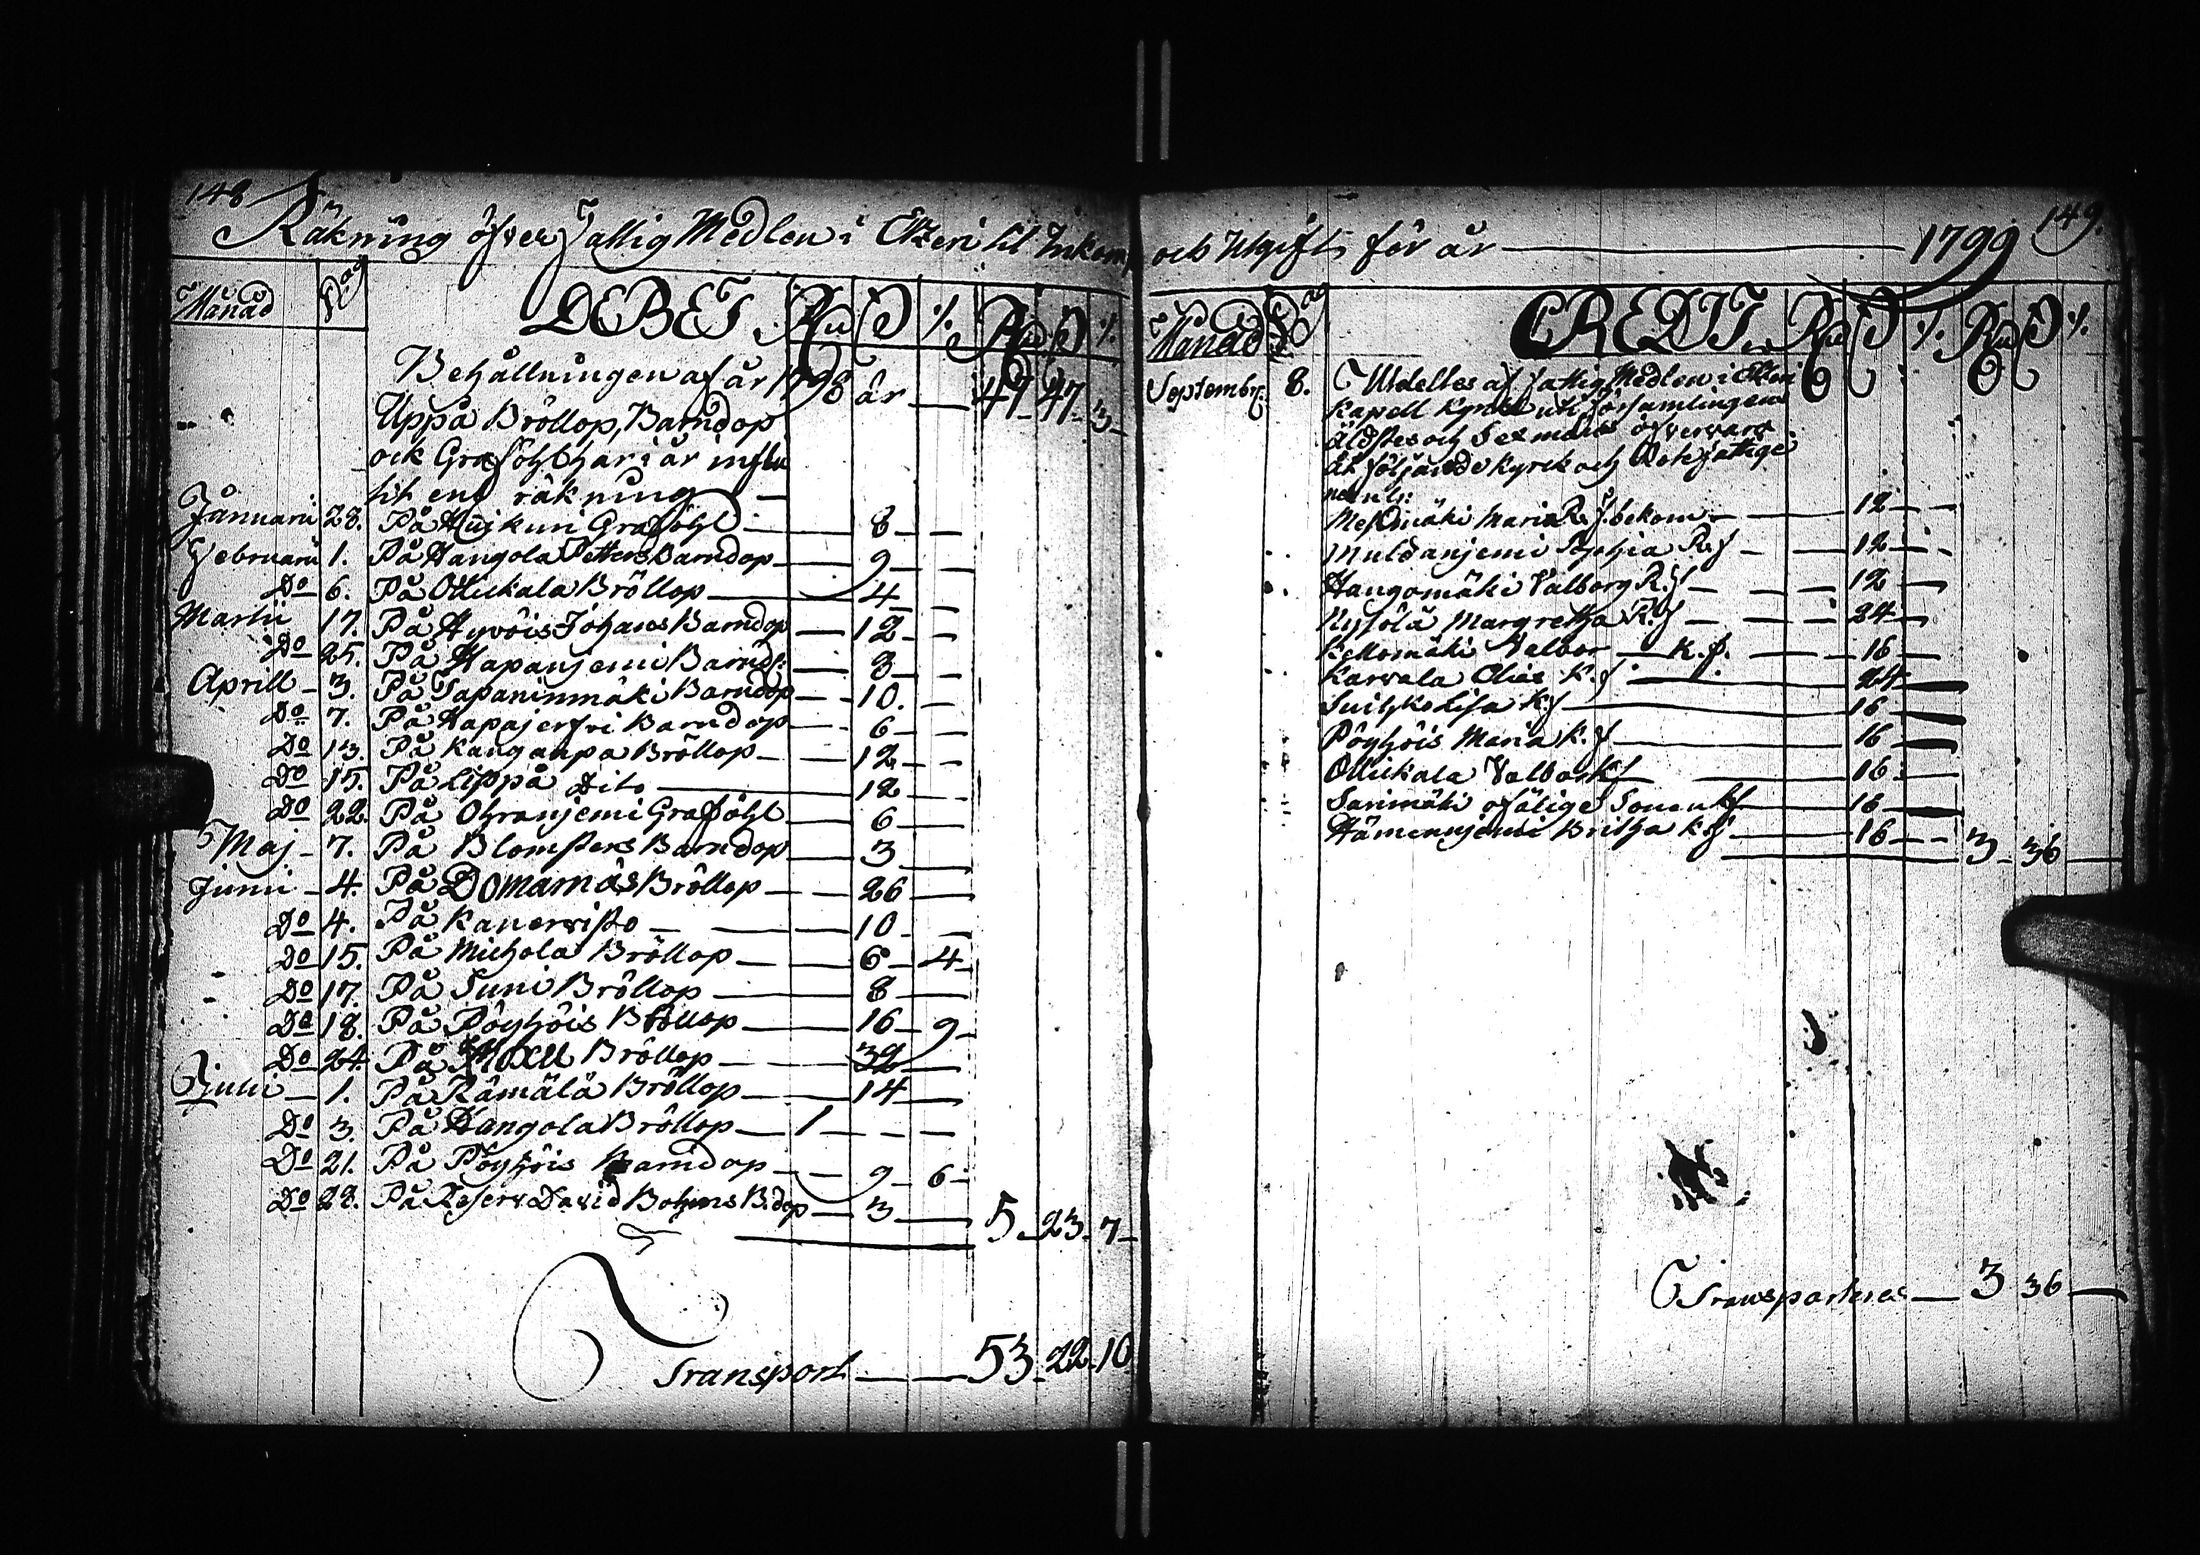 148
Räkning öfver Fattig Medlen i Etzeri til Inkom
Månad Dag DEBET. Rd S % Rd S %
Behållningen af år 1798 är — 47 47 3
Uppå Bröllop, Barndop
ock Graföhl har i år influ
tit enl räkning —
Januarii 28. På Huikuri Graföhl — 8 — —
Februarii 1. På Hangola Petters Barndop — 9 — —
Do 6. På Ollickala Bröllop — 4 — —
Martii 17. På Hyvöis Johans Barndop — 12 — —
Do 25. På Hapanjemi Barnd: — 8 — —
Aprill — 3. På Tapaninmäki Barndop — 10. —
Do 7. På Hapajerfvi Barndop — 6 — —
Do 13. På Kangaspa Bröllop — 12 — —
Do 15. På Lippä Dito — 12 — —
Do 22. På Ohranjemi Graföhl — 6 — —
Maj — 7. På Blomsters Barndop — 3 —
Junii — 4. På Domarnäs Bröllop — 26 —
Do 4. På Kanervisto — — 10 —
Do 15. På Michola Bröllop — 6 — 4
Do 17. På Suni Bröllop — 8 —
Do 18. På Pöyhöis Bröllop — 16 — 9
Do 24. På Bröllop — 32 —
Julii — 1. På Rämälä Bröllop — 14 —
Do 3. På Hangola Bröllop — 1 — — —
Do 21. På Pöyhöis Barndop — 9 — 6
Do 28. På Reserv David Bohms B.dop — 3 — 5 — 23 — 7
Transport — — 53 — 22 — 10
149.
och Utgift för år — 1799
Månad Dag CREDIT. Rd S % Rd S %
Septembr: 8. Utdeltes af Fattig Medlen i Etzeri
Kapell Kyrka uti Församlingens
Äldstes och Sexmäns öfvervaro
åt följande Kyrck och Rotefattige
neml:
Maria R.f. bekom — 12 — —
Muldanjemi Sophia R.f — 12 — —
Hangomäki Valborg R.f — 12 — —
Nysölä Margretha R.f — 24 — —
Kellomäki Valbor — K.f. — 16 —
Karvala Elias K.f — 24 —
Suihko Lisa K.f — 16 —
Pöyhöis Maria K.f — 16 —
Ollickala Valbor K.f — 16 —
Sarimäki ofälige Sonen K.f — 16 —
Hämennjemi Britha K.f — 16 — — 3 — 36 —
Transporteras — 3 36 —